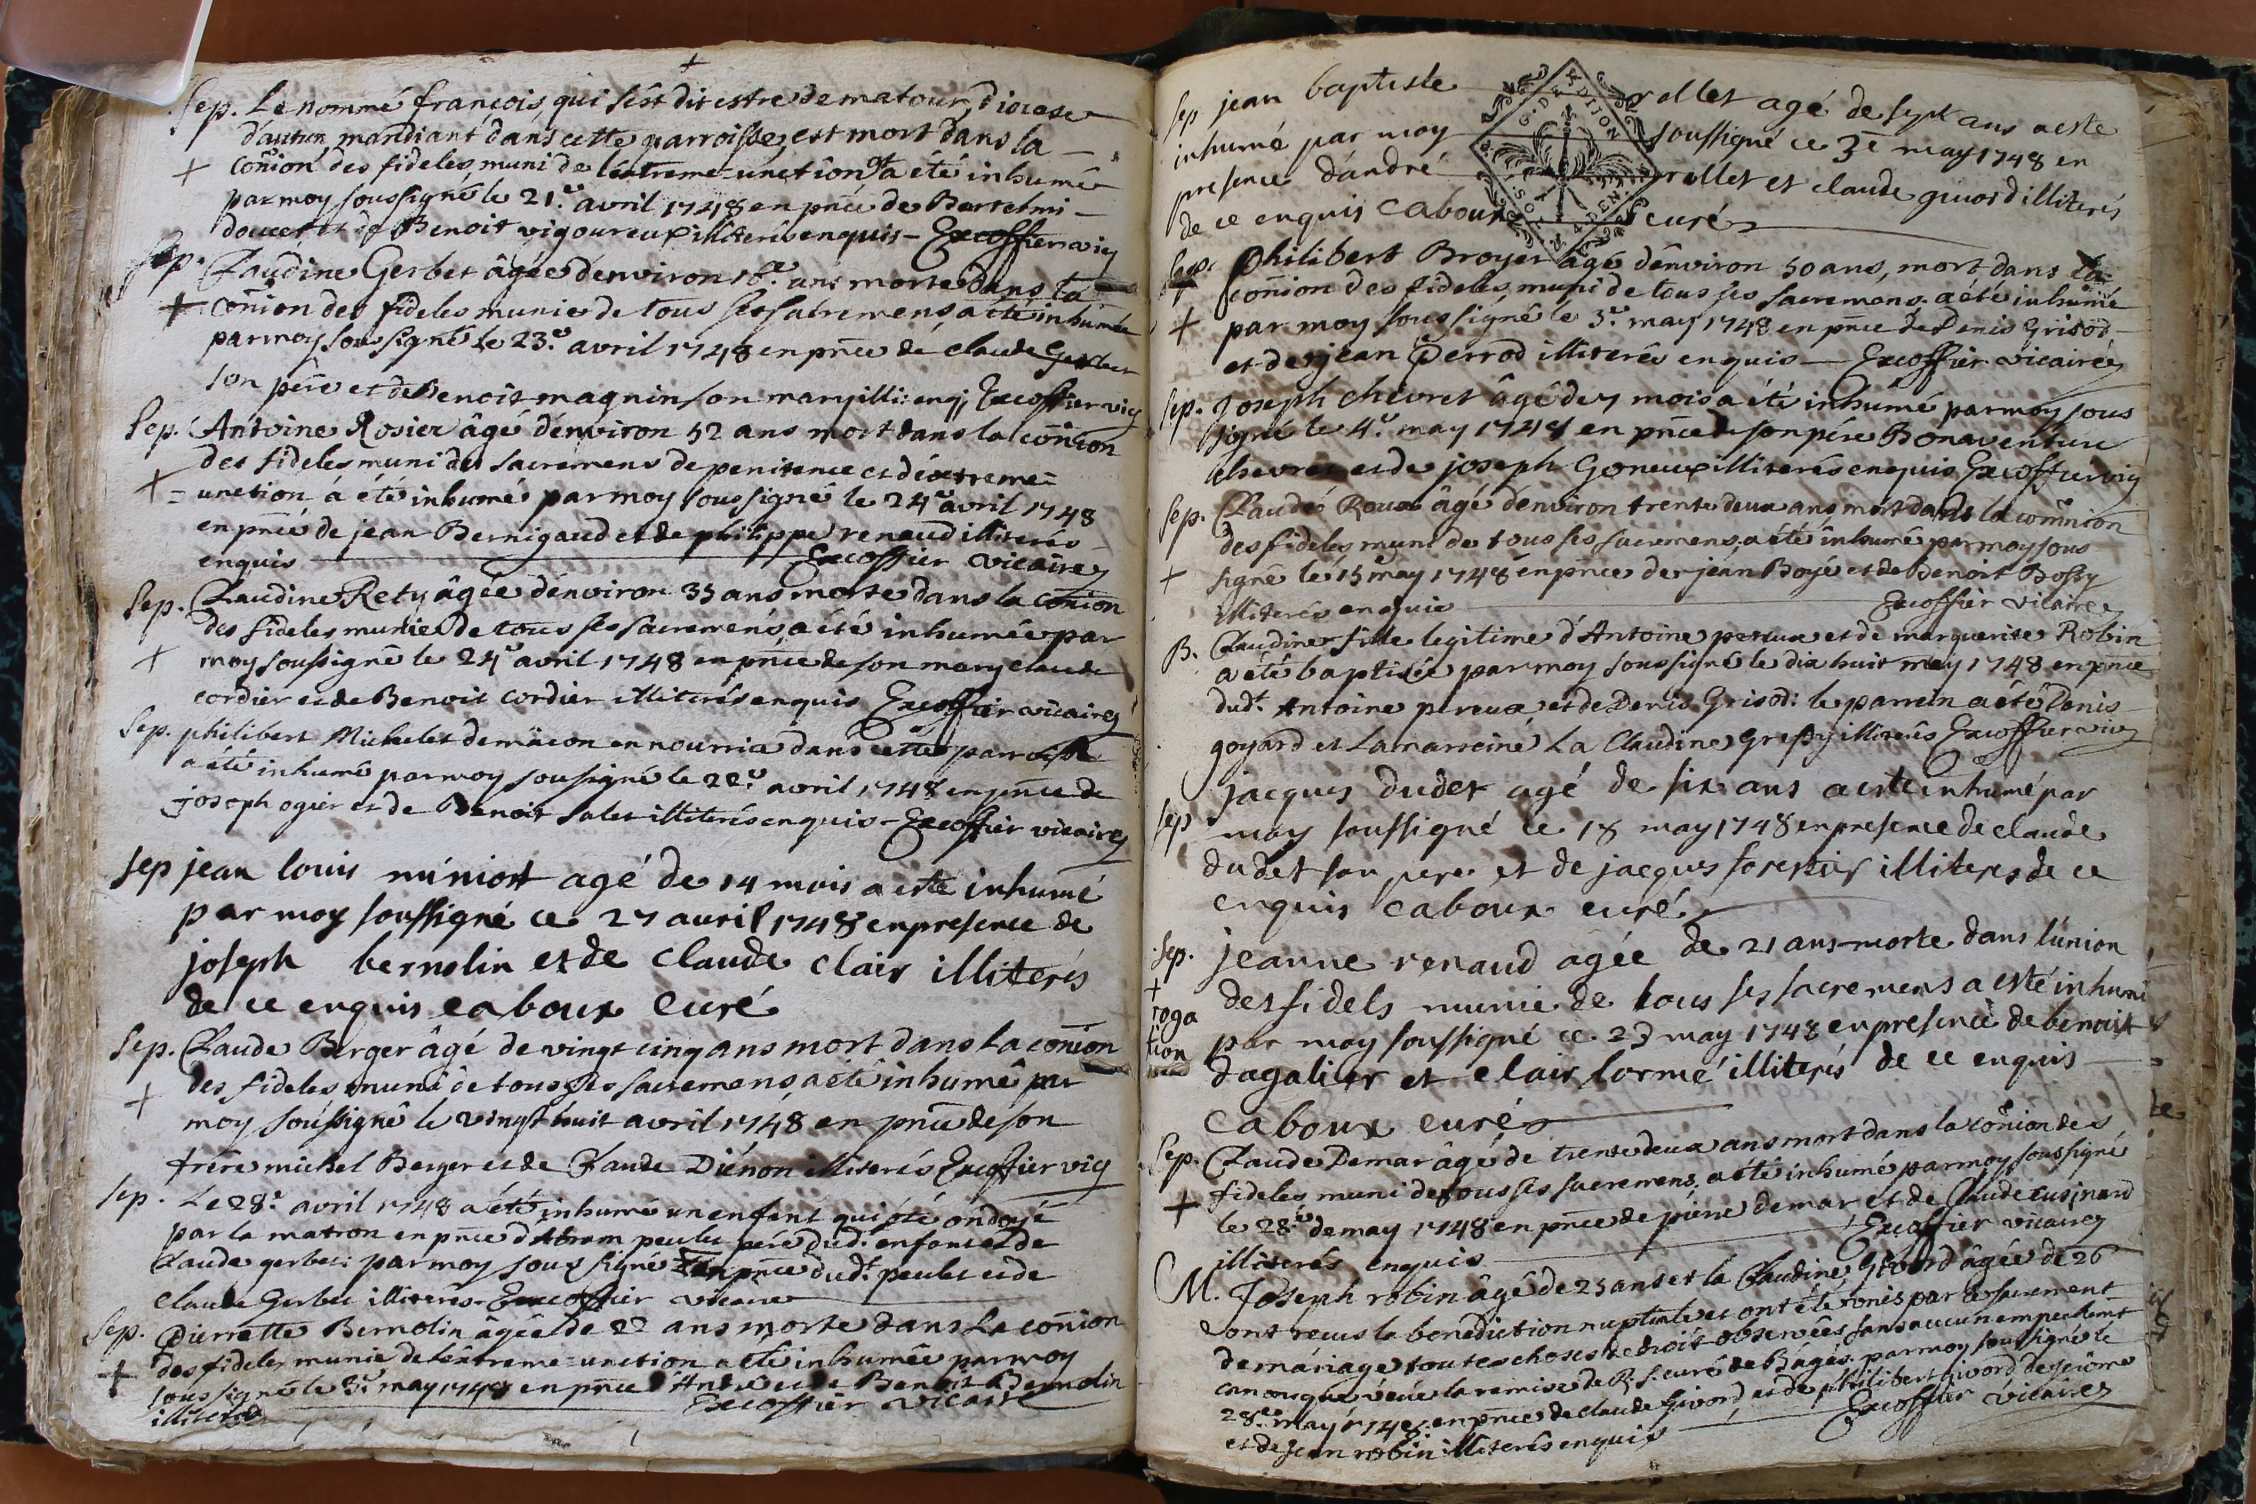 Sep. Le nommé françois, qui s'est dit estre de matour, diocese
d'autun, mandiant dans cette parroisse, est mort dans la
coñion des fideles, muni de l'extreme-unction et a été inhumé
par moy soussigné le 21.e avril 1748 en pñce de Bartelmi
doucet et de Benoit vigoureux illiterés enquis - Excoffier vic
Sep. Claudine Gerbet âgée d'environ 16.e ans morte dans la
coñion des fideles munie de tous ses sacremens, a été inhumée
par moy soussigné le 23.e avril 1748 en pñce de claude Gerbet
son père et de Benoit magnin son mary illi: enq; Excoffier vic
Sep. Antoine Rosier âgé d'environ 52 ans mort dans la coñion
des fideles muni des sacremens de penitence et d'extreme=
=unction á été inhumé par moy soussigné le 24e avril 1748
en pñce de jean Bernigaud et de philippe renaud illiterés
enquis Excoffier vicaire
Sep. Claudine Rety âgée d'environ 35 ans morte dans la coñion
des fideles munie de tous ses sacremens, a été inhumée par
moy soussigné le 24e avril 1748 en pñce de son mary claude
cordier et de Benoit cordier illiterés enquis Excoffier vicaire
Sep. philibert Michelet de mâcon en nourrice dans cette parroisse
a été inhumé par moy soussigné le 22.e avril 1748 en pñce de
joseph ogier et de Benoit Salet illiterés enquis - Excoffier vicaire
sep jean louis miniost agé de 14 mois a esté inhumé
par moy soussigné ce 27 avril 1748 en presence de
joseph bernolin et de claude clair illiterés
de ce enquis caboux curé
Sep. Claude Berger âgé de vingt cinq ans mort dans la coñion
des fideles muni de tous ses sacremens, a été inhumé par
moy soussigné le vingt huit avril 1748 en pñce de son
frére michel Berger et de Claude Diénon illiterés Excoffier vic
sep. Le 28.e avril 1748 a été inhumé un enfent qui été ondoyé
par la matron en pñce d'Abram peulet pére dud. enfant et de
Claude gerbet: par moy soussigné en pñce dudt. peulet et de
claude Gerbet illiterés. Excoffier vicaire
Sep. Pierrette Bernolin âgée de 22 ans morte dans la coñion
des fideles munie de l'extreme=unction a été inhumée par moy
soussigné le 3.e may 1748 en pñce d'André et de Benoit Bernolin
illiterés Excoffier vicaire
Sep jean baptiste rollet agé de sept ans a esté
inhumé par moy soussigné ce 3e may 1748 en
presence d'andré rollet et claude givord illiterés
de ce enquis Caboux curé
G. DE DIJON
4 DEN
Sep. Philibert Broyer âgé d'environ 50 ans, mort dans la
coñion des fideles, muni de tous ses sacremens. a été inhumé
par moy soussigné le 3.e may 1748 en pñce de Denis Grisod
et de jean Perrod illiterés enquis Excoffier vicaire
Sep. Joseph chevret âgé de 7 mois a été inhumé par moy sous
signé le 4.e may 1748 en pñce de son pére Bonaventure
chevret et de joseph Goneux illiterés enquis Excoffier vic
Sep. Claude Roux âgé d'environ trente deux ans mort dans la comñion
des fideles muni de tous ses sacremens, a été inhumé par moy sous
signé le 15 may 1748 en pñce de jean Boyé et de Benoit Bossy
illiterés enquis Excoffier vicaire
B. Claudine fille legitime d'Antoine pereux et de marguerite Robin
a été baptisée par moy soussigné le dix huit may 1748 en pñce
dudt. Antoine pereux et de Denis Grisod: le parrein a été Denis
goyard et La marreine La Claudine Gressy illiterés Excoffier vic
jacques dudet agé de six ans a esté inhumé par
sep moy soussigné ce 18 may 1748 en presence de claude
dudet son pere et de jacques forestier illiterés de ce
enquis caboux curé
Sep. jeanne renaud agée de 21 ans morte dans l'union
des fidels munie de tous ses sacremens a esté inhumé
roga
tion
par moy soussigné ce 23 may 1748 en presence de benoist
dagalier et clair lormé illiterés de ce enquis
caboux curé
Sep. Claude Demar âgé de trente deux ans mort dans la coñion des
fideles muni de tous ses sacremens, a été inhumé par moy soussigné
le 28.e de may 1748 en pñce de piérre demar et de Claude cusinard
illiterés enquis Excoffier vicaire
M. Joseph robin âgé de 25 ans et la Claudine Givord âgée de 26
ont reçus la benediction nuptiale et ont été unis par le sacrement
de máriage toutes choses de droit observées sans aucun empechemt
canonique veüe la remise de R. S. curé de Bâgé. par moy soussigné le
28.e may 1748. en pñce de claude Givord et de philibert Givord
et de jean robin illiterés enquis Excoffier vicaire